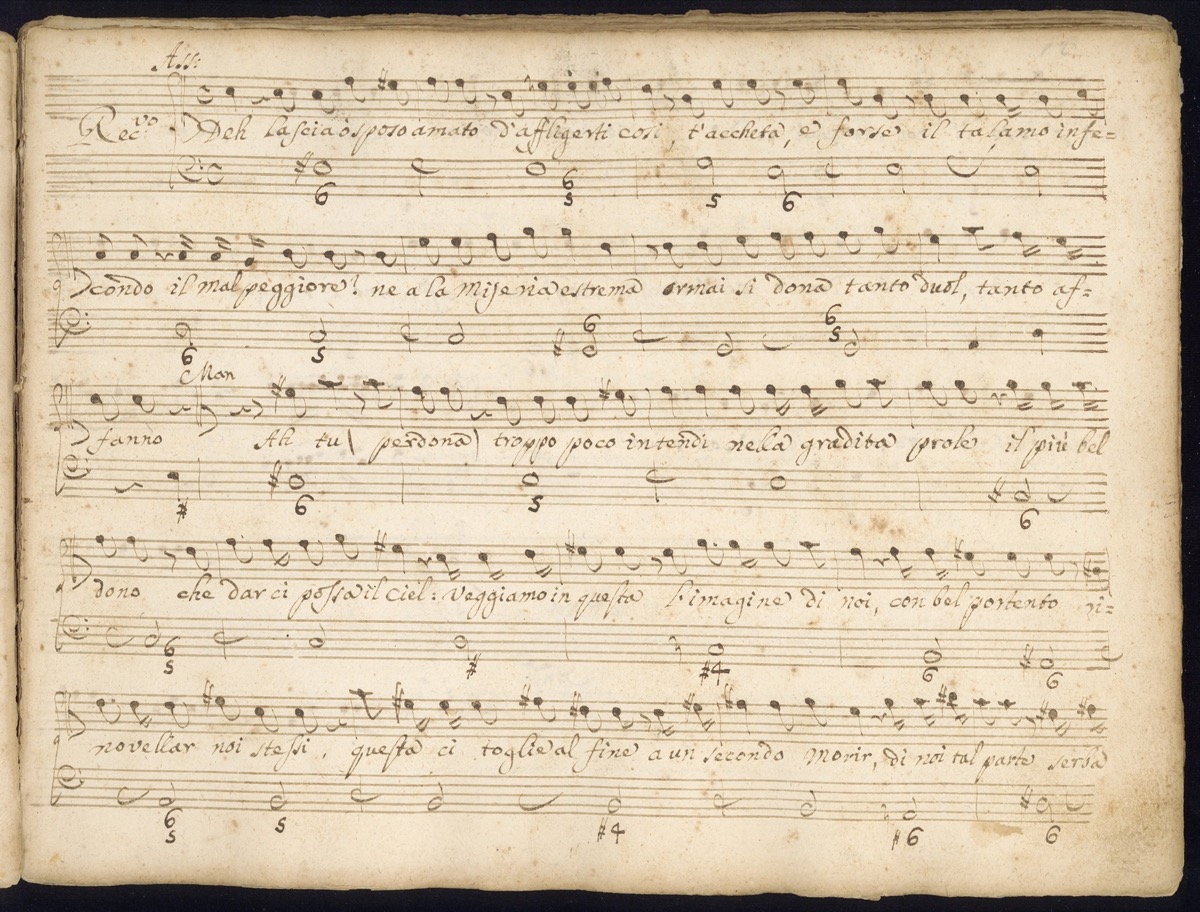 Ass:
Rec:vo Deh lascia ò sposo amato d'affligerti cosi, t'accheta, e forse il talamo infe=
6 6 5 5 6
condo il mal peggiore? ne a la miseria estrema ormai si dona tanto duol, tanto af=
6 5 6 6 5
Man
fanno Ah tu ( perdona ) troppo poco intendi nella gradita prole il più bel
# 6 5 6
dono che dar ci possa il Ciel: Veggiamo in questa l'imagine di noi, con bel portento ri=
6 5 # #4 6 6
novellar noi stessi, questa ci toglie al fine a un secondo morir, di noi tal parte serba
6 5 5 #4 #6 6